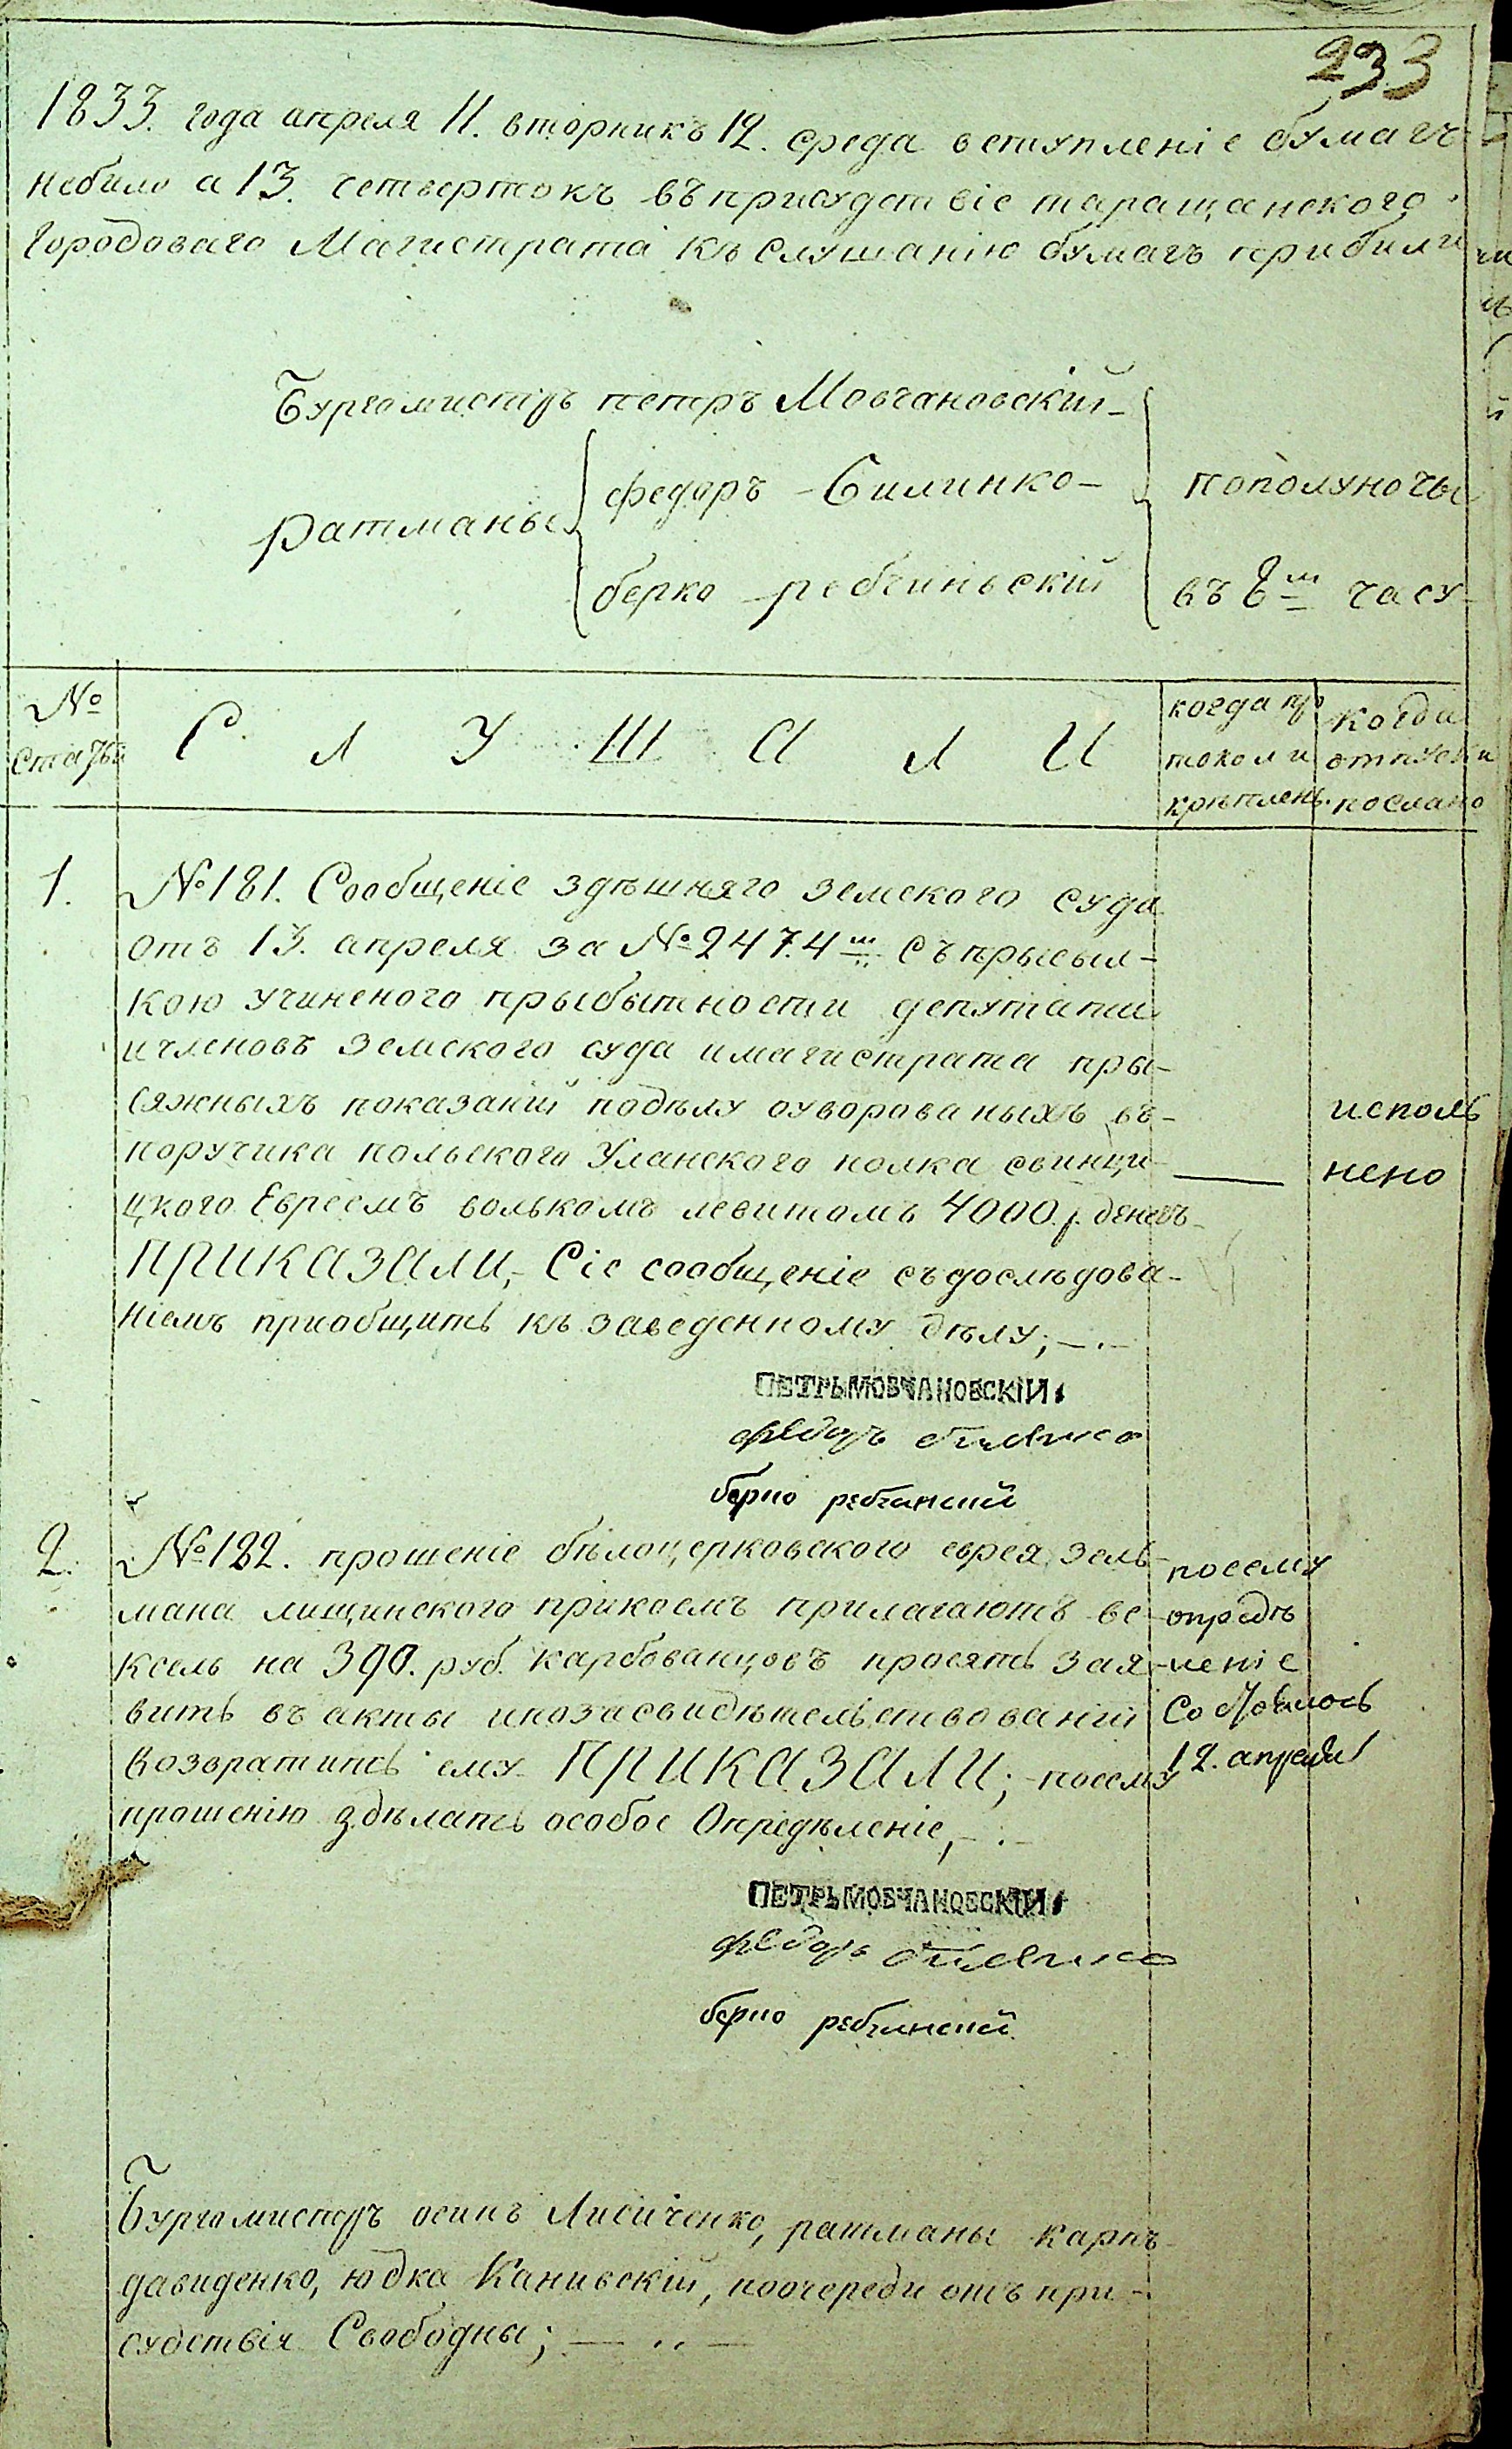 233
1833. года апреля 11. вторникъ 12. среда вступленіе бумагъ
небило а 13. четвертокъ въприсудствіе таращанского
Городоваго Магистрата къ слушанію бумагъ прибили
Бургомистръ петръ Мовчановскій
Ратманы
федоръ - Билинко -
берко ребчиньскій
пополуночы
въ 8м часу
№ статьи
С Л У Ш А Л И
когда протокол и крѣпленъ.
когда отпуски послано
1.
№ 181. Сообщеніе здѣшняго земского суда
отъ 13. апреля за № 2474м съ прысыл-
кою учиненого прыбытности депутата
ичленовъ земского суда имагистрата пры-
сяжныхъ показаній подѣлу оуворованыхъ въ-
поручика польского Уланского полка свинци-
цкого Евреемъ волькомъ левитомъ 4000. р. денегъ
ПРИКАЗАЛИ, - Сіе сообщеніе съдослѣдова-
ніемъ приобщить къ заведенному дѣлу; - . -
исполь
нено
ПЕТРЪ МОВЧАНОВСКІЙ
федоръ билинко
берко ребчинскій
2.
№ 182. прошеніе бѣлоцерковского еврея зель-
мана лищинского прикоемъ прилагаютъ ве-
ксель на 390. руб. карбованцовъ просятъ зая-
вить въ акты ипозасвидѣтельствованіи
Возвратить ему ПРИКАЗАЛИ; - посему
прошенію здѣлать особое Опредѣленіе, - . -
посему
опредѣ
леніе
Состоялось
12. апреля
ПЕТРЪ МОВЧАНОВСКІЙ
федоръ билинко
берко ребчинскій
Бургомистръ осипъ Лисиченко, ратманы карпъ
давиденко, юдка Канивскій, поочереди отъ при-
судствія Свободны; - . . -